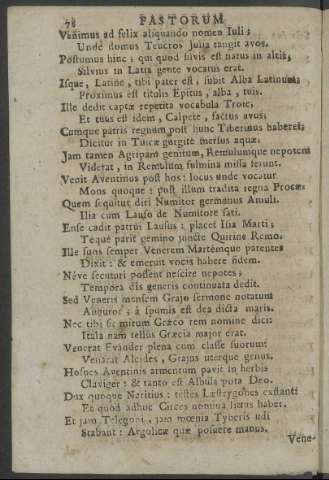 78 PASTORUM
Venimus ad felix aliquando nomen Iuli;
Unde domus Teucros Julia tangit avos.
Postumus hinc; qui quod silvis est natus in altis,
Silvius in Latia gente vocatus erat.
Isque, Latine, tibi pater est; subit Alba Latinum;
Proximus est titulis Epitus, alba, tuis.
Ille dedit captæ repetita vocabula Troiæ,
Et tuus est idem, Calpete, factus avus;
Cumque patris regnum post hunc Tiberinus haberet;
Dicitur in Tuscæ gurgite mersus aquæ.
Jam tamen Agripam genitum, Remulumque nepotem
Viderat, in Remulum fulmina missa ferunt.
Venit Aventinus post hos: locus unde vocatur
Mons quoque: post illum tradita regna Procæ;
Quem sequitur diri Numitor germanus Amuli.
Ilia cum Lauso de Numitore sati.
Ense cadit patrui Lausus; placet Ilia Marti;
Téque parit gemino juncte Quirine Remo.
Ille suos semper Venerem Martémque parentes
Dixit: & emeruit vocis habere fidem.
Néve secuturi possent nescire nepotes;
Tempora dîs generis continuata dedit.
Sed Veneris mensem Grajo sermone notatum
Auguror; á spumis est dea dicta maris.
Nec tibi sit mirum Græco rem nomine dici:
Itala nam tellus Græcia major erat.
Venerat Evander plena cum classe suorum:
Venarat Alcides, Grajus uterque genus.
Hospes Aventinis armentum pavit in herbis
Claviger: & tanto est Albula pota Deo.
Dux quoque Neritius: testes Læstrygones exstant:
Et quod adhuc Circes nomina littus habet.
Et jam Telegoni, jam mœnia Tyberis udi
Stabant: Argolicæ quæ posuere manus.
Vene-